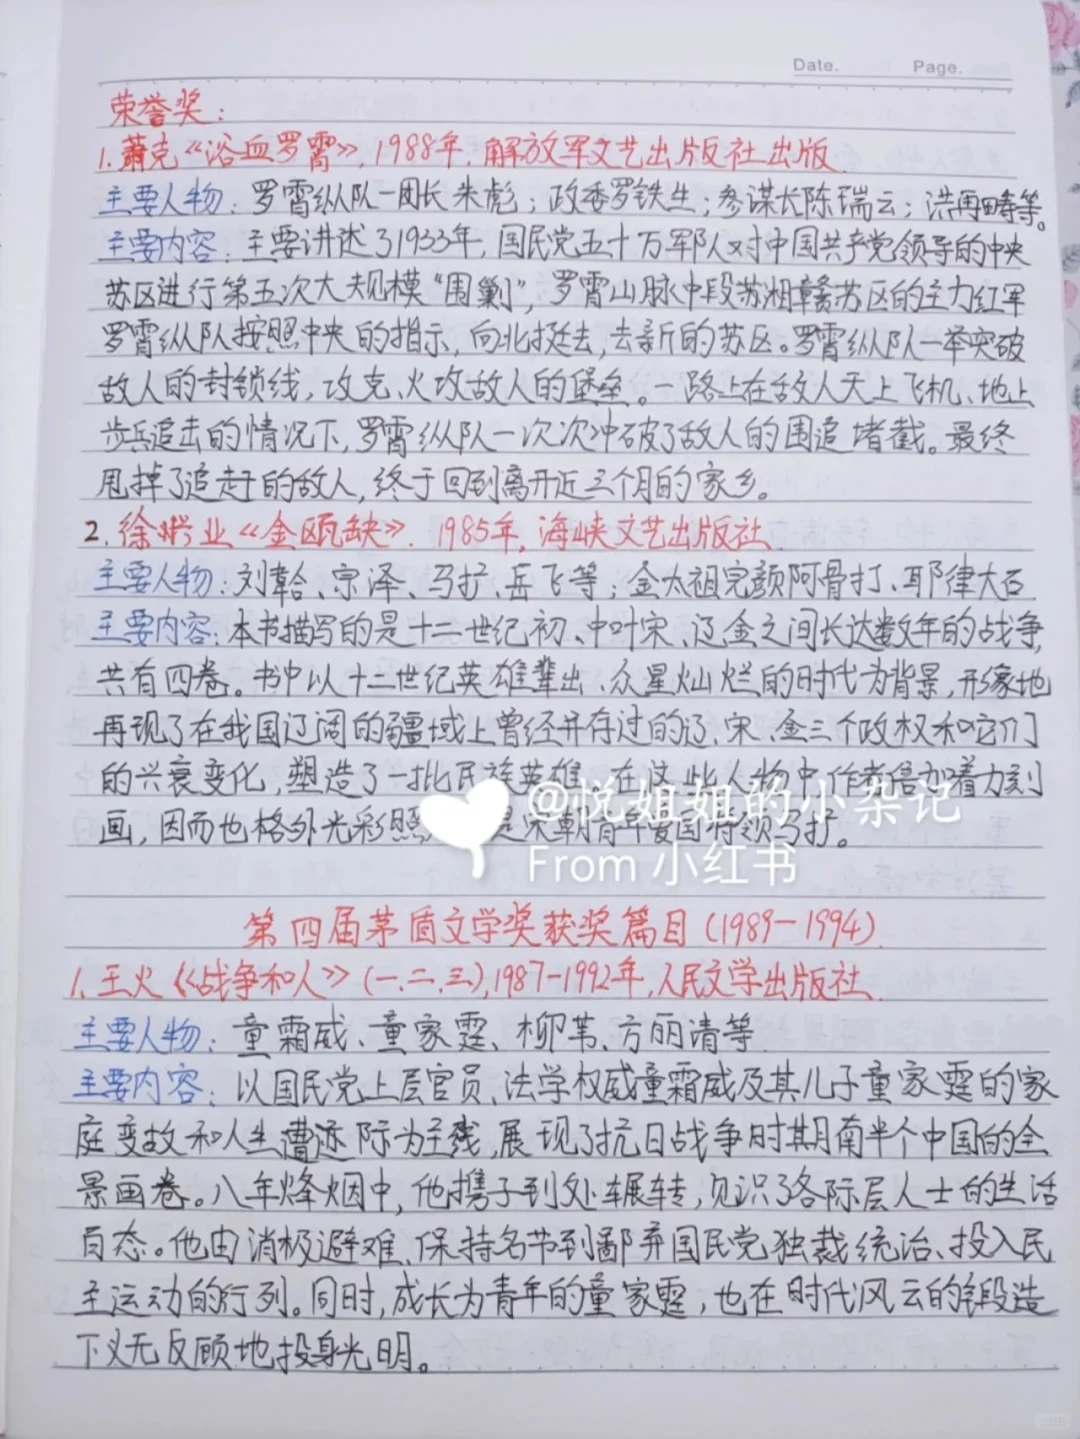 Date. Page.
荣誉奖：
1.萧克《浴血罗霄》,1988年,解放军文艺出版社出版
主要人物：罗霄纵队一团长朱彪；政委罗铁生；参谋长陈瑞云；洪再畴等。
主要内容：主要讲述了1933年,国民党五十万军队对中国共产党领导的中央
苏区进行第五次大规模“围剿”,罗霄山脉中段苏湘赣苏区的主力红军
罗霄纵队按照中央的指示,向北挺去,去新的苏区。罗霄纵队一举突破
敌人的封锁线,攻克、火攻敌人的堡垒。一路上在敌人天上飞机、地上
步兵追击的情况下,罗霄纵队一次次冲破了敌人的围追堵截。最终
甩掉了追赶的敌人,终于回到离开近三个月的家乡。
2.徐兴业《金瓯缺》.1985年,海峡文艺出版社
主要人物：刘韐、宗泽、马扩、岳飞等；金太祖完颜阿骨打、耶律大石
主要内容：本书描写的是十二世纪初、中叶宋、辽金之间长达数年的战争,
共有四卷。书中以十二世纪英雄辈出、众星灿烂的时代为背景,形象地
再现了在我国辽阔的疆域上曾经并存过的辽、宋、金三个政权和它们
的兴衰变化,塑造了一批民族英雄。在这些人物中,作者倍加着力刻
画,因而也格外光彩照 是宋朝青年爱国将领马扩。
@悦姐姐的小杂记
From 小红书
第四届茅盾文学奖获奖篇目(1989-1994)
1.王火《战争和人》(一.二.三),1987-1992年,人民文学出版社
主要人物：童霜威、童家霆、柳苇、方丽清等
主要内容：以国民党上层官员、法学权威童霜威及其儿子童家霆的家
庭变故和人生遭际为主线,展现了抗日战争时期南半个中国的全
景画卷。八年烽烟中,他携子到处辗转,见识了各际层人士的生活
百态。他由消极避难、保持名节到鄙弃国民党独裁统治、投入民
主运动的行列。同时,成长为青年的童家霆,也在时代风云的锻造
下义无反顾地投身光明。